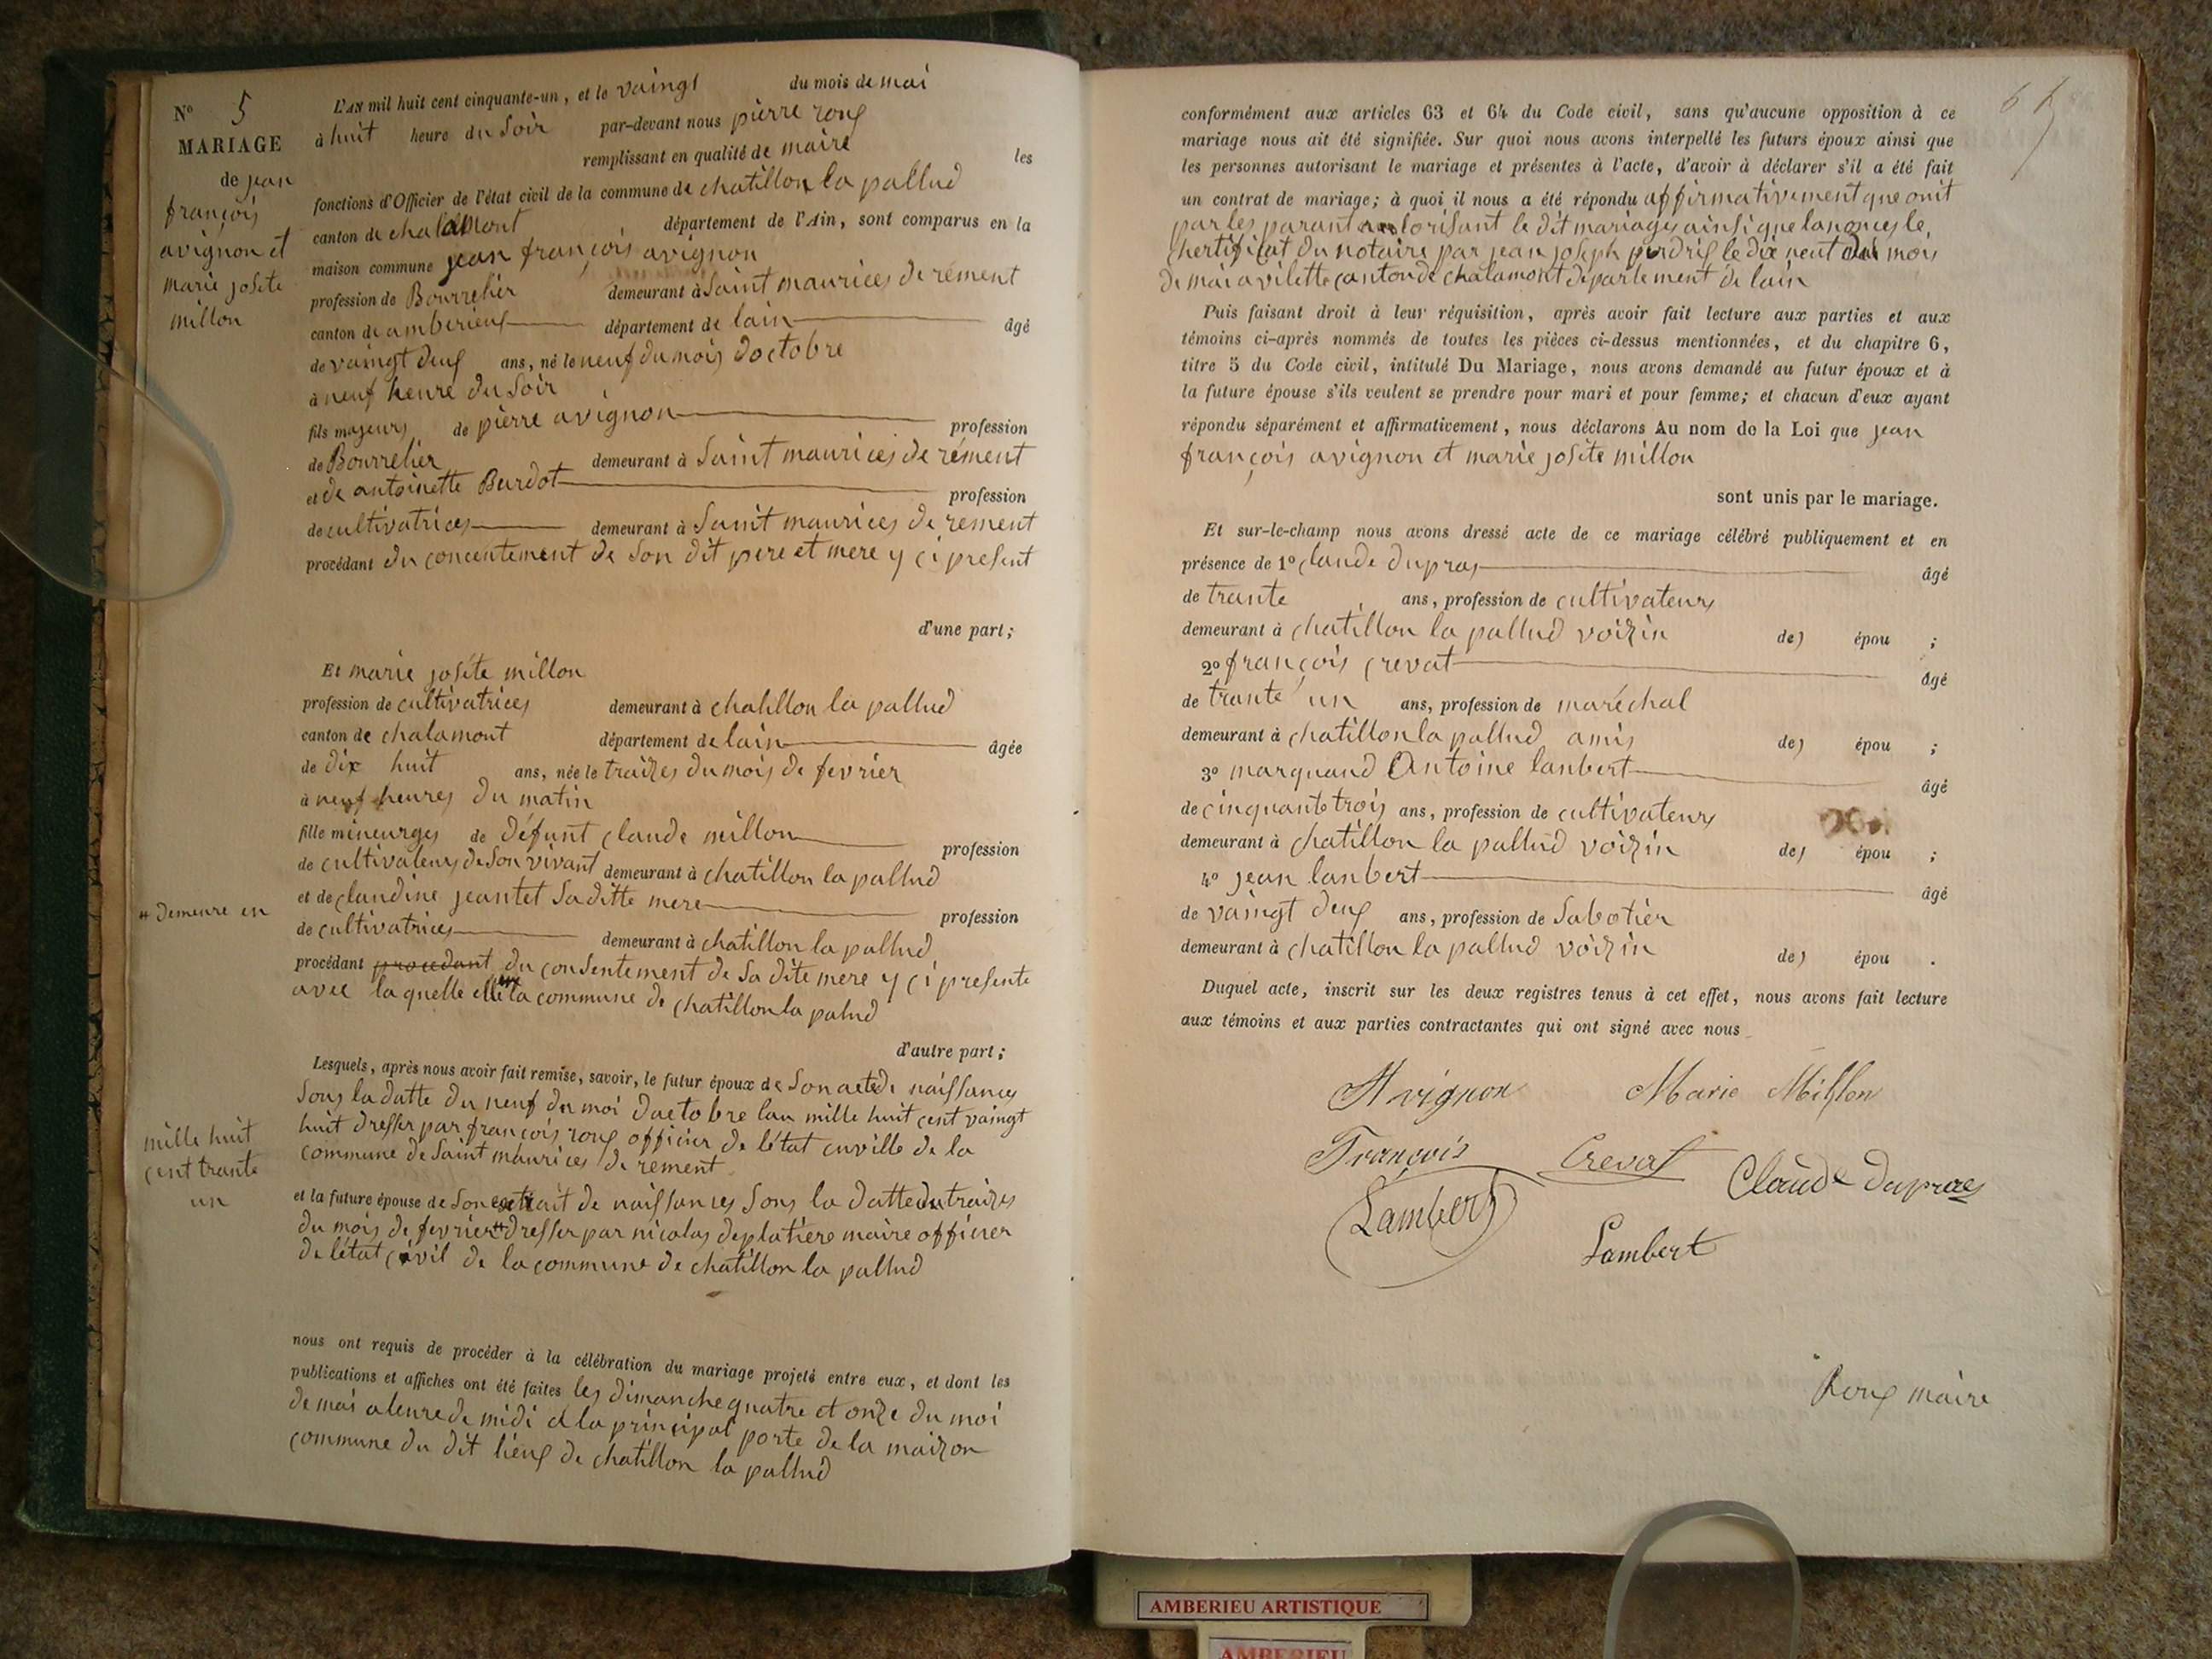 N° 5
MARIAGE
de jean
françois
avignon et
marie joséte
millon
L'AN mil huit cent cinquante-un, et le vaingt du mois de mai
à huit heure du soir par-devant nous pierre roux
remplissant en qualité de maire les
fonctions d'Officier de l'état civil de la commune de chatillon la pallud
canton de chalamont département de l'Ain, sont comparus en la
maison commune jean françois avignon
profession de Bourrelier demeurant à Saint maurices de rément
canton de amberieux département de lain âgé
de vaingt deux ans, né le neuf du mois doctobre
à neuf heure du soir
fils majeurs de pierre avignon profession
de Bourrelier demeurant à Saint maurices de rément
et de antoinette Burdot profession
de cultivatrices demeurant à Saint maurices de rement
procédant du concentement de son dit pere et mere y ci present
d'une part;
Et marie joséte millon
profession de cultivatrices demeurant à chatillon la pallud
canton de chalamont département de lain âgée
de dix huit ans, née le traizes du mois de fevrier
à neuf heures du matin
fille mineurges de défunt claude millon profession
de cultivateurs de son vivant demeurant à chatillon la pallud
et de claudine jeantet sa ditte mere profession
# demeure en
de cultivatrices demeurant à chatillon la pallud
procédant procedant du consentement de sa dite mere y ci presente
avec la quelle elle la commune de chatillon la palud
d'autre part;
Lesquels, après nous avoir fait remise, savoir, le futur époux de son acte de naissances
sous la datte du neuf du moi doctobre lan mille huit cent vaingt
huit dresser par françois roux officier de létat cuville de la
commune de Saint maurices de rement
mille huit
cent trante
un
et la future épouse de son extrait de naissances sous la datte du traizes
du mois de fevrier # dresser par nicolas deplatiere maire officier
de létat civil de la commune de chatillon la pallud
nous ont requis de procéder à la célébration du mariage projeté entre eux, et dont les
publications et affiches ont été faites les dimanche quatre et onze du moi
de mai aleure de midi a la principal porte de la maizon
commune du dit lieux de chatillon la pallud
conformément aux articles 63 et 64 du Code civil, sans qu'aucune opposition à ce
mariage nous ait été signifiée. Sur quoi nous avons interpellé les futurs époux ainsi que
les personnes autorisant le mariage et présentes à l'acte, d'avoir à déclarer s'il a été fait
un contrat de mariage; à quoi il nous a été répondu affirmativement que ouit
par les parant autorisant le dit mariages ainsi que lanonces le
chertificat du notaire par jean joseph le dix neuf du mois
de mai a vilette canton de chalamont département de lain
Puis faisant droit à leur réquisition, après avoir fait lecture aux parties et aux
témoins ci-après nommés de toutes les pièces ci-dessus mentionnées, et du chapitre 6,
titre 5 du Code civil, intitulé Du Mariage, nous avons demandé au futur époux et à
la future épouse s'ils veulent se prendre pour mari et pour femme; et chacun d'eux ayant
répondu séparément et affirmativement, nous déclarons Au nom de la Loi que jean
françois avignon et marie joséte millon
sont unis par le mariage.
Et sur-le-champ nous avons dressé acte de ce mariage célébré publiquement et en
présence de 1° claude dupras âgé
de trante ans, profession de cultivateurs
demeurant à chatillon la pallud voizin des épou ;
2° françois crevat âgé
de trante un ans, profession de maréchal
demeurant à chatillon la pallud amis des épou ;
3° marquand Antoine lanbert âgé
de cinquante trois ans, profession de cultivateurs
demeurant à chatillon la pallud voizin des épou ;
4° jean lanbert âgé
de vaingt deux ans, profession de Sabotier
demeurant à chatillon la pallud voizin des épou .
Duquel acte, inscrit sur les deux registres tenus à cet effet, nous avons fait lecture
aux témoins et aux parties contractantes qui ont signé avec nous
Avignon Marie Millon
François Crevat Claude dupras
Lambert
Lambert
Roux maire
AMBERIEU ARTISTIQUE
AMBERIEU